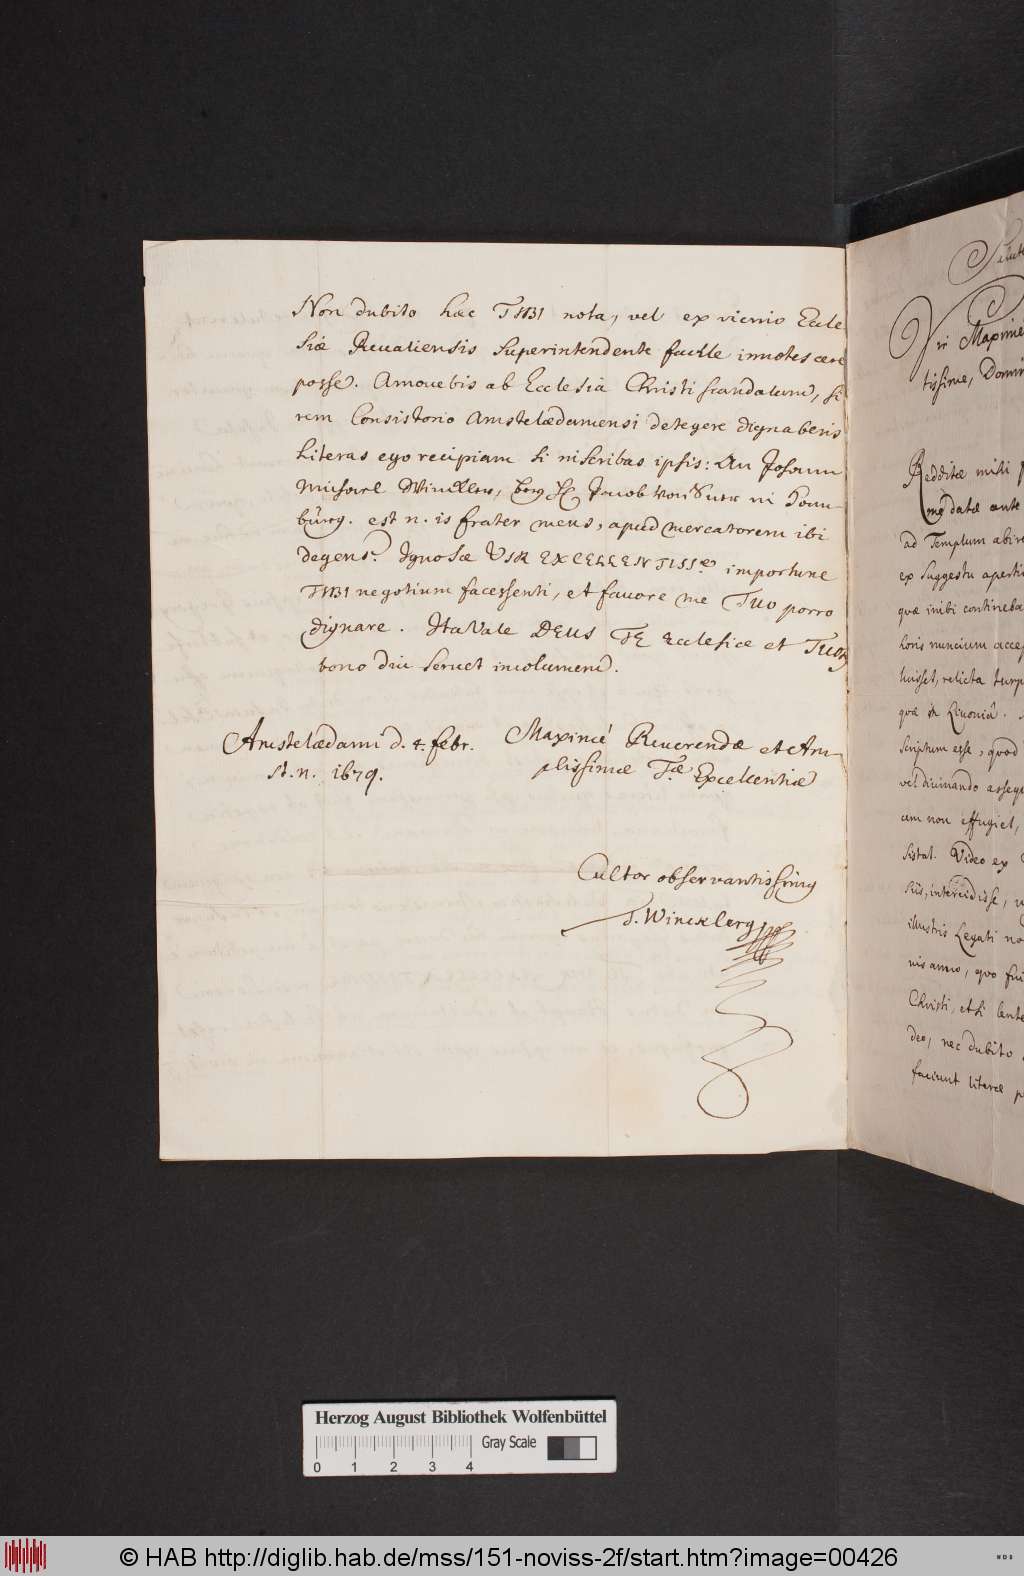 Non dubito hæc TIBI nota, vel ex vicinio Eccle
siæ Revaliensis Superintendente facile innotescere
posse. Amovebis ab Ecclesiâ Christi scandalum, si
rem Consistorio Amstelædamensi detegere dignaberis
Literas ego recipiam si inscribas ipsis: An Johann
Michael Wincklern, bey H. Jacob von in Ham-
burg. est n. is frater meus, apud mercatorem ibi
degens. Ignosce VIR EXCELLENTISS.e importune
TIBI negotium facessenti, et favore me TUO porro
dignare. Ita Vale DEUS TE Ecclesiæ et TUOR
bono diu servet incolumem.
Amstelædami d. 4. febr.
st. n. 1679.
Maximè Reverendæ et Am-
plissimæ T.æ Excellentiæ
Cultor observantissimus
T. Wincklerus
Salute
Vir Maxime
tissime, Domin
Redditæ mihi
datæ ante
ad Templum abire
ex suggestu aperti
quæ inibi contineba
horis nuncium accep
luisset, relicta turp
quæ in Livonia.
scriptum esse, quod
vel divinando asseq
cum non effugiet,
sistat. Video ex
siis, intercidisse,
illustris Legati no
nis anno, quo fui
Christi, etsi lente
deo, nec dubito
faciunt literæ
Herzog August Bibliothek Wolfenbüttel
0 1 2 3 4 Gray Scale
© HAB http://diglib.hab.de/mss/151-noviss-2f/start.htm?image=00426
HAB